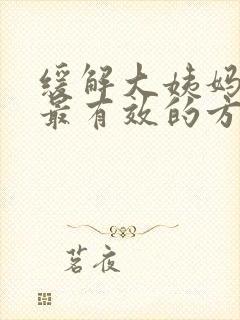 缓解大姨妈
最有效的方
茗夜